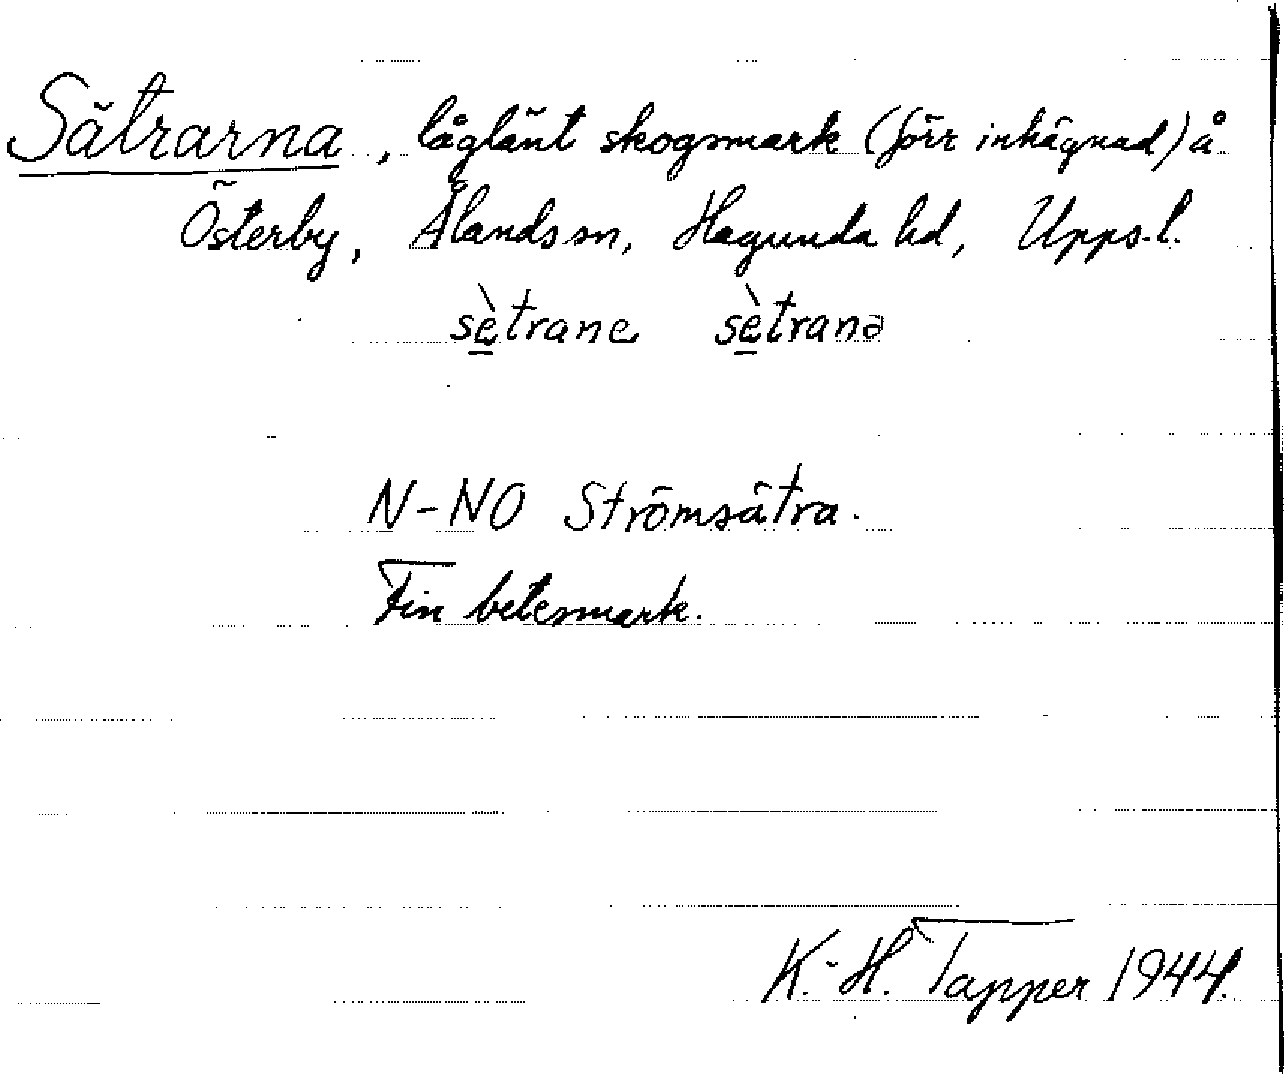 Sätrarna, låglänt skogsmark (förr inhägnad) å
Österby, Ålands sn, Hagunda hd, Upps.l.
sè̱trane sè̱tranə
N-NO Strömsätra.
Fin betesmark.
K.-H. Tapper 1944.